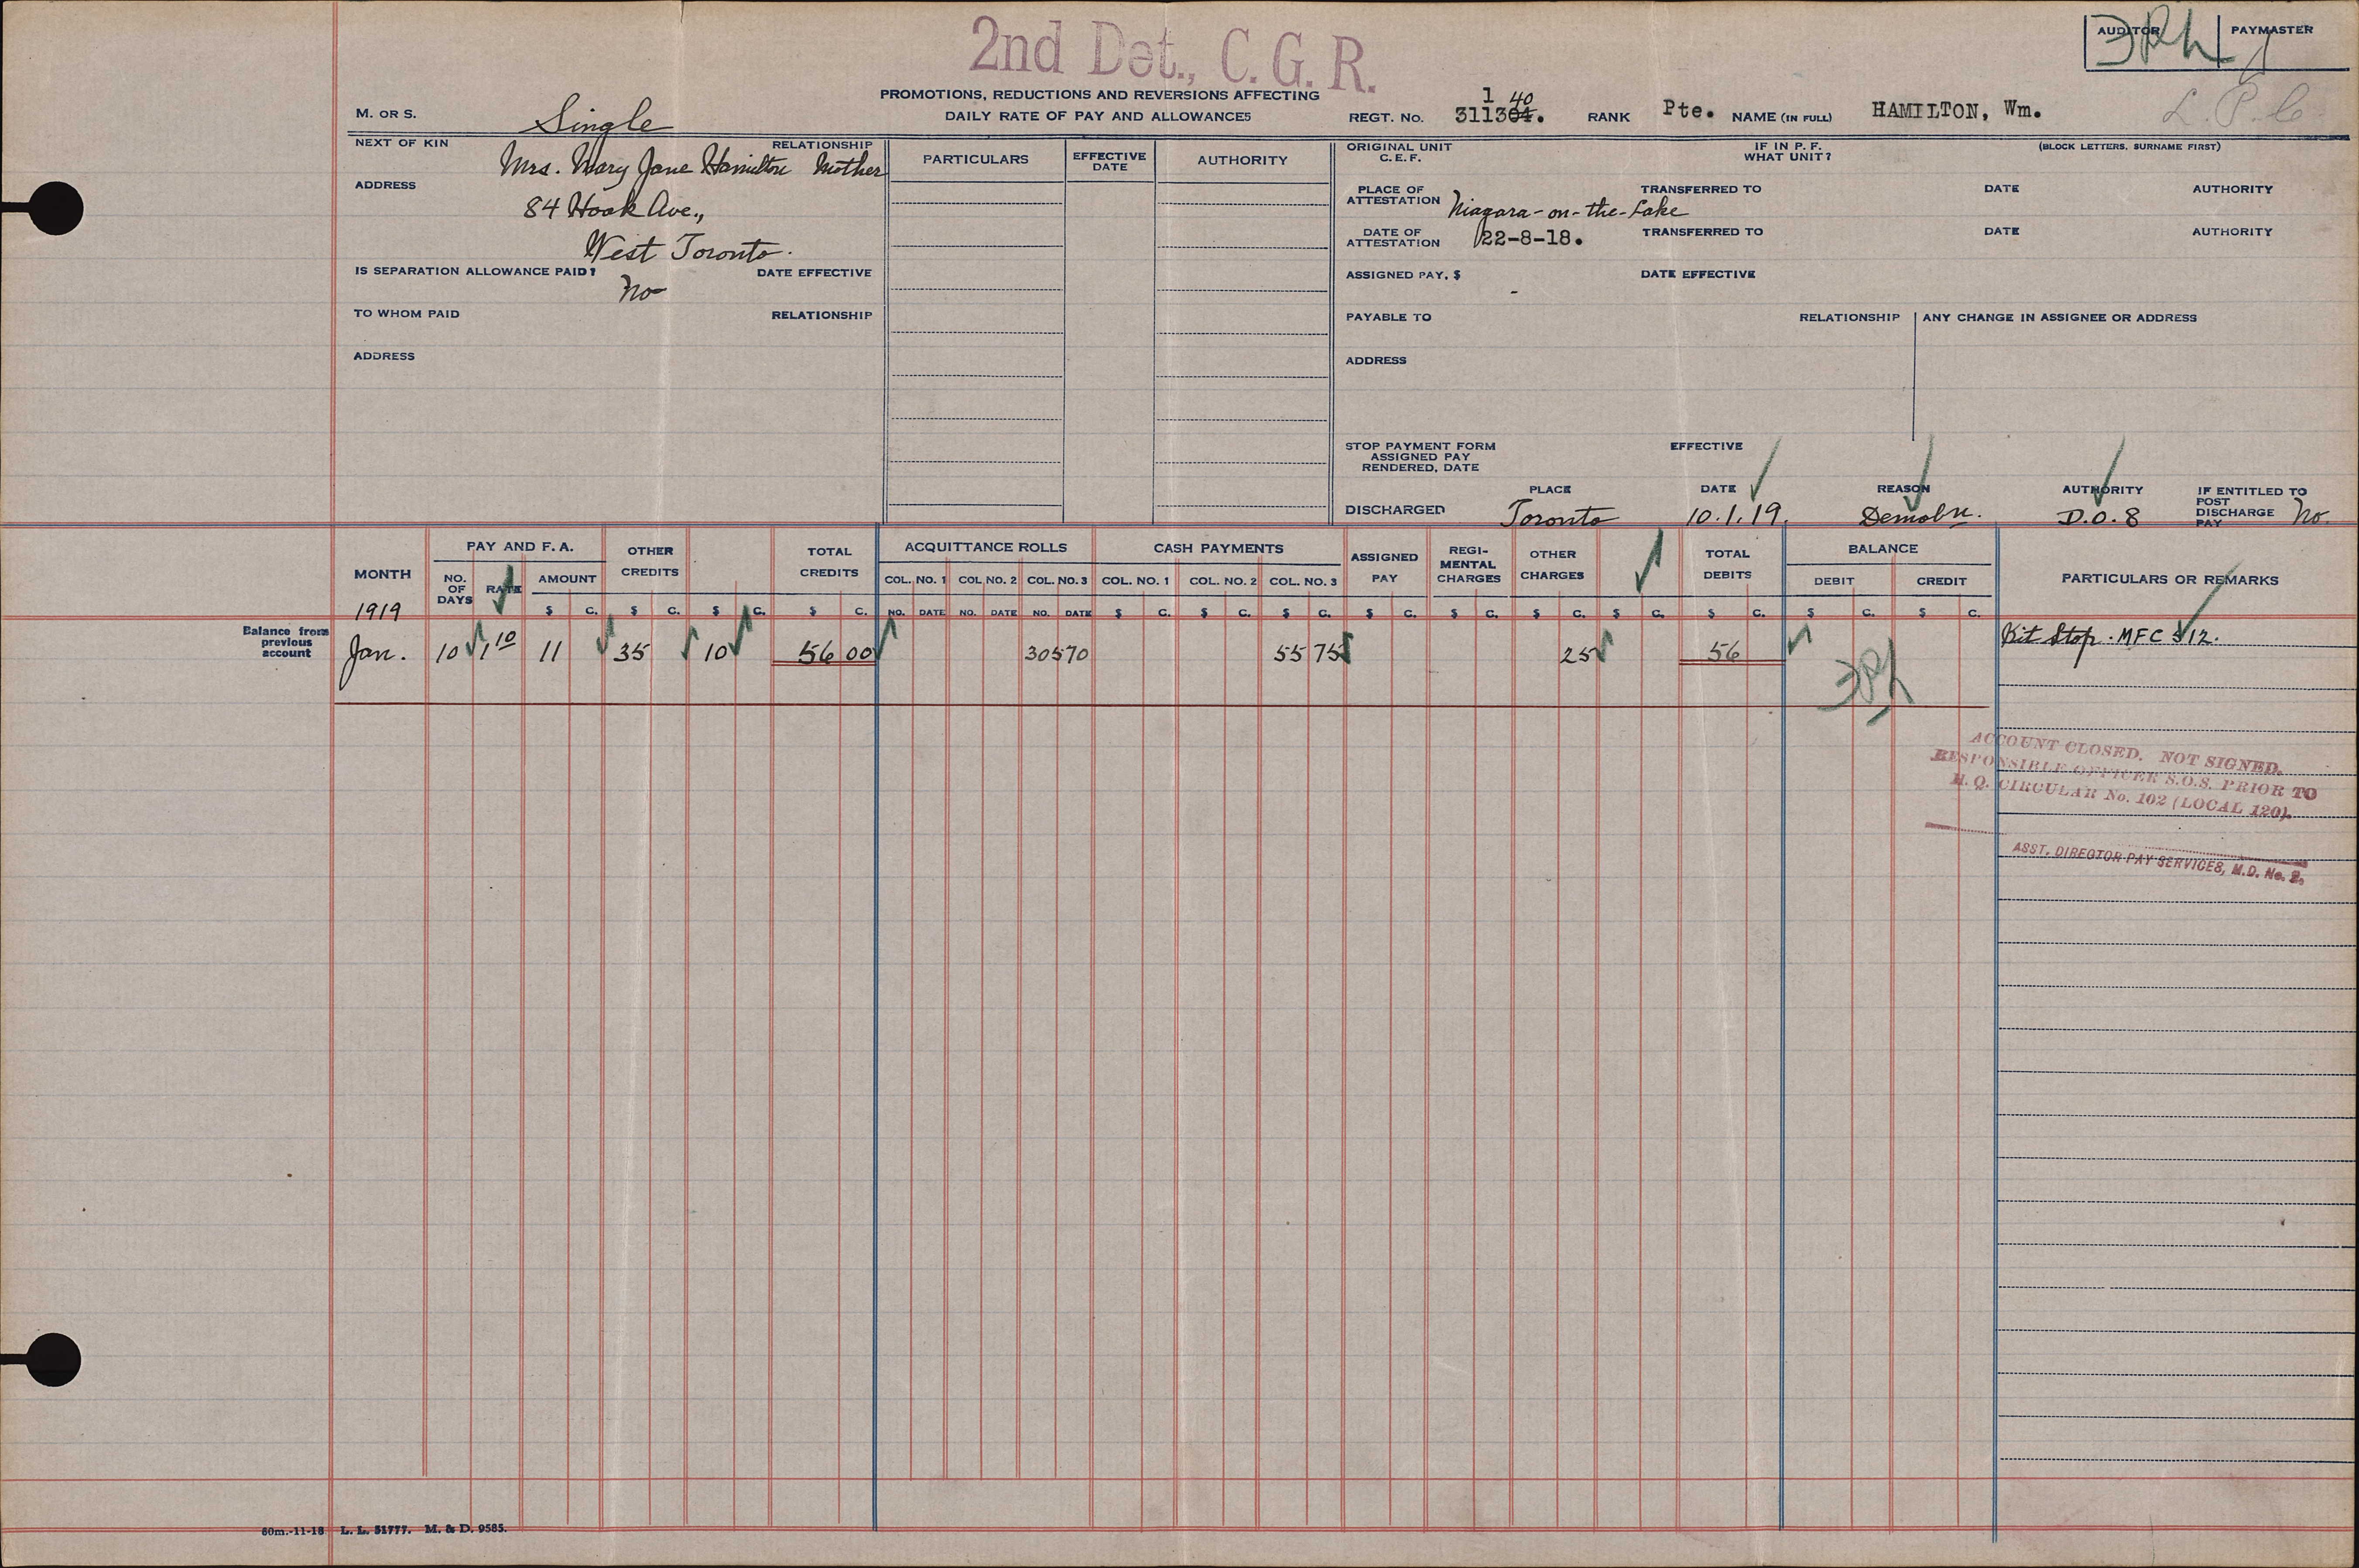 2nd Det., C. G. R.
AUDITOR PAYMASTER
PROMOTIONS, REDUCTIONS AND REVERSIONS AFFECTING
DAILY RATE OF PAY AND ALLOWANCES
M. OR S. Single
REGT. No. 311304. 1 40 RANK Pte. NAME (IN FULL) HAMILTON, Wm.
L. P. C
(BLOCK LETTERS, SURNAME FIRST)
NEXT OF KIN Mrs. Mary Jane Hamilton RELATIONSHIP Mother
ADDRESS 84 Hook Ave.,
West Toronto.
IS SEPARATION ALLOWANCE PAID? No DATE EFFECTIVE
TO WHOM PAID RELATIONSHIP
ADDRESS
PARTICULARS EFFECTIVE DATE AUTHORITY
ORIGINAL UNIT C.E.F. IF IN P. F. WHAT UNIT?
PLACE OF ATTESTATION Niagara-on-the-Lake TRANSFERRED TO DATE AUTHORITY
DATE OF ATTESTATION 22-8-18. TRANSFERRED TO DATE AUTHORITY
ASSIGNED PAY, $ - DATE EFFECTIVE
PAYABLE TO RELATIONSHIP ANY CHANGE IN ASSIGNEE OR ADDRESS
ADDRESS
STOP PAYMENT FORM ASSIGNED PAY RENDERED, DATE EFFECTIVE
PLACE DATE REASON AUTHORITY IF ENTITLED TO POST DISCHARGE PAY No.
DISCHARGED Toronto 10.1.19. Demobn. D.O.8
MONTH PAY AND F. A. OTHER CREDITS TOTAL CREDITS ACQUITTANCE ROLLS CASH PAYMENTS ASSIGNED PAY REGI-MENTAL CHARGES OTHER CHARGES TOTAL DEBITS BALANCE PARTICULARS OR REMARKS
NO. OF DAYS RATE AMOUNT COL. NO. 1 COL. NO. 2 COL. NO. 3 COL. NO. 1 COL. NO. 2 COL. NO. 3 DEBIT CREDIT
1919 $ C. $ C. $ C. $ C. NO. DATE NO. DATE NO. DATE $ C. $ C. $ C. $ C. $ C. $ C. $ C. $ C. $ C. $ C.
Balance from previous account
Jan. 10 1 10 11 35 10 56 00 30570 55 75 25 56 Kit Stop. MFC 512.
ACCOUNT CLOSED. NOT SIGNED.
RESPONSIBLE OFFICER S.O.S. PRIOR TO
H. Q. CIRCULAR No. 102 (LOCAL 120).
ASST. DIRECTOR PAY SERVICES, M.D. No. 2.
60m.-11-18 L. L. 51777. M. & D. 9585.